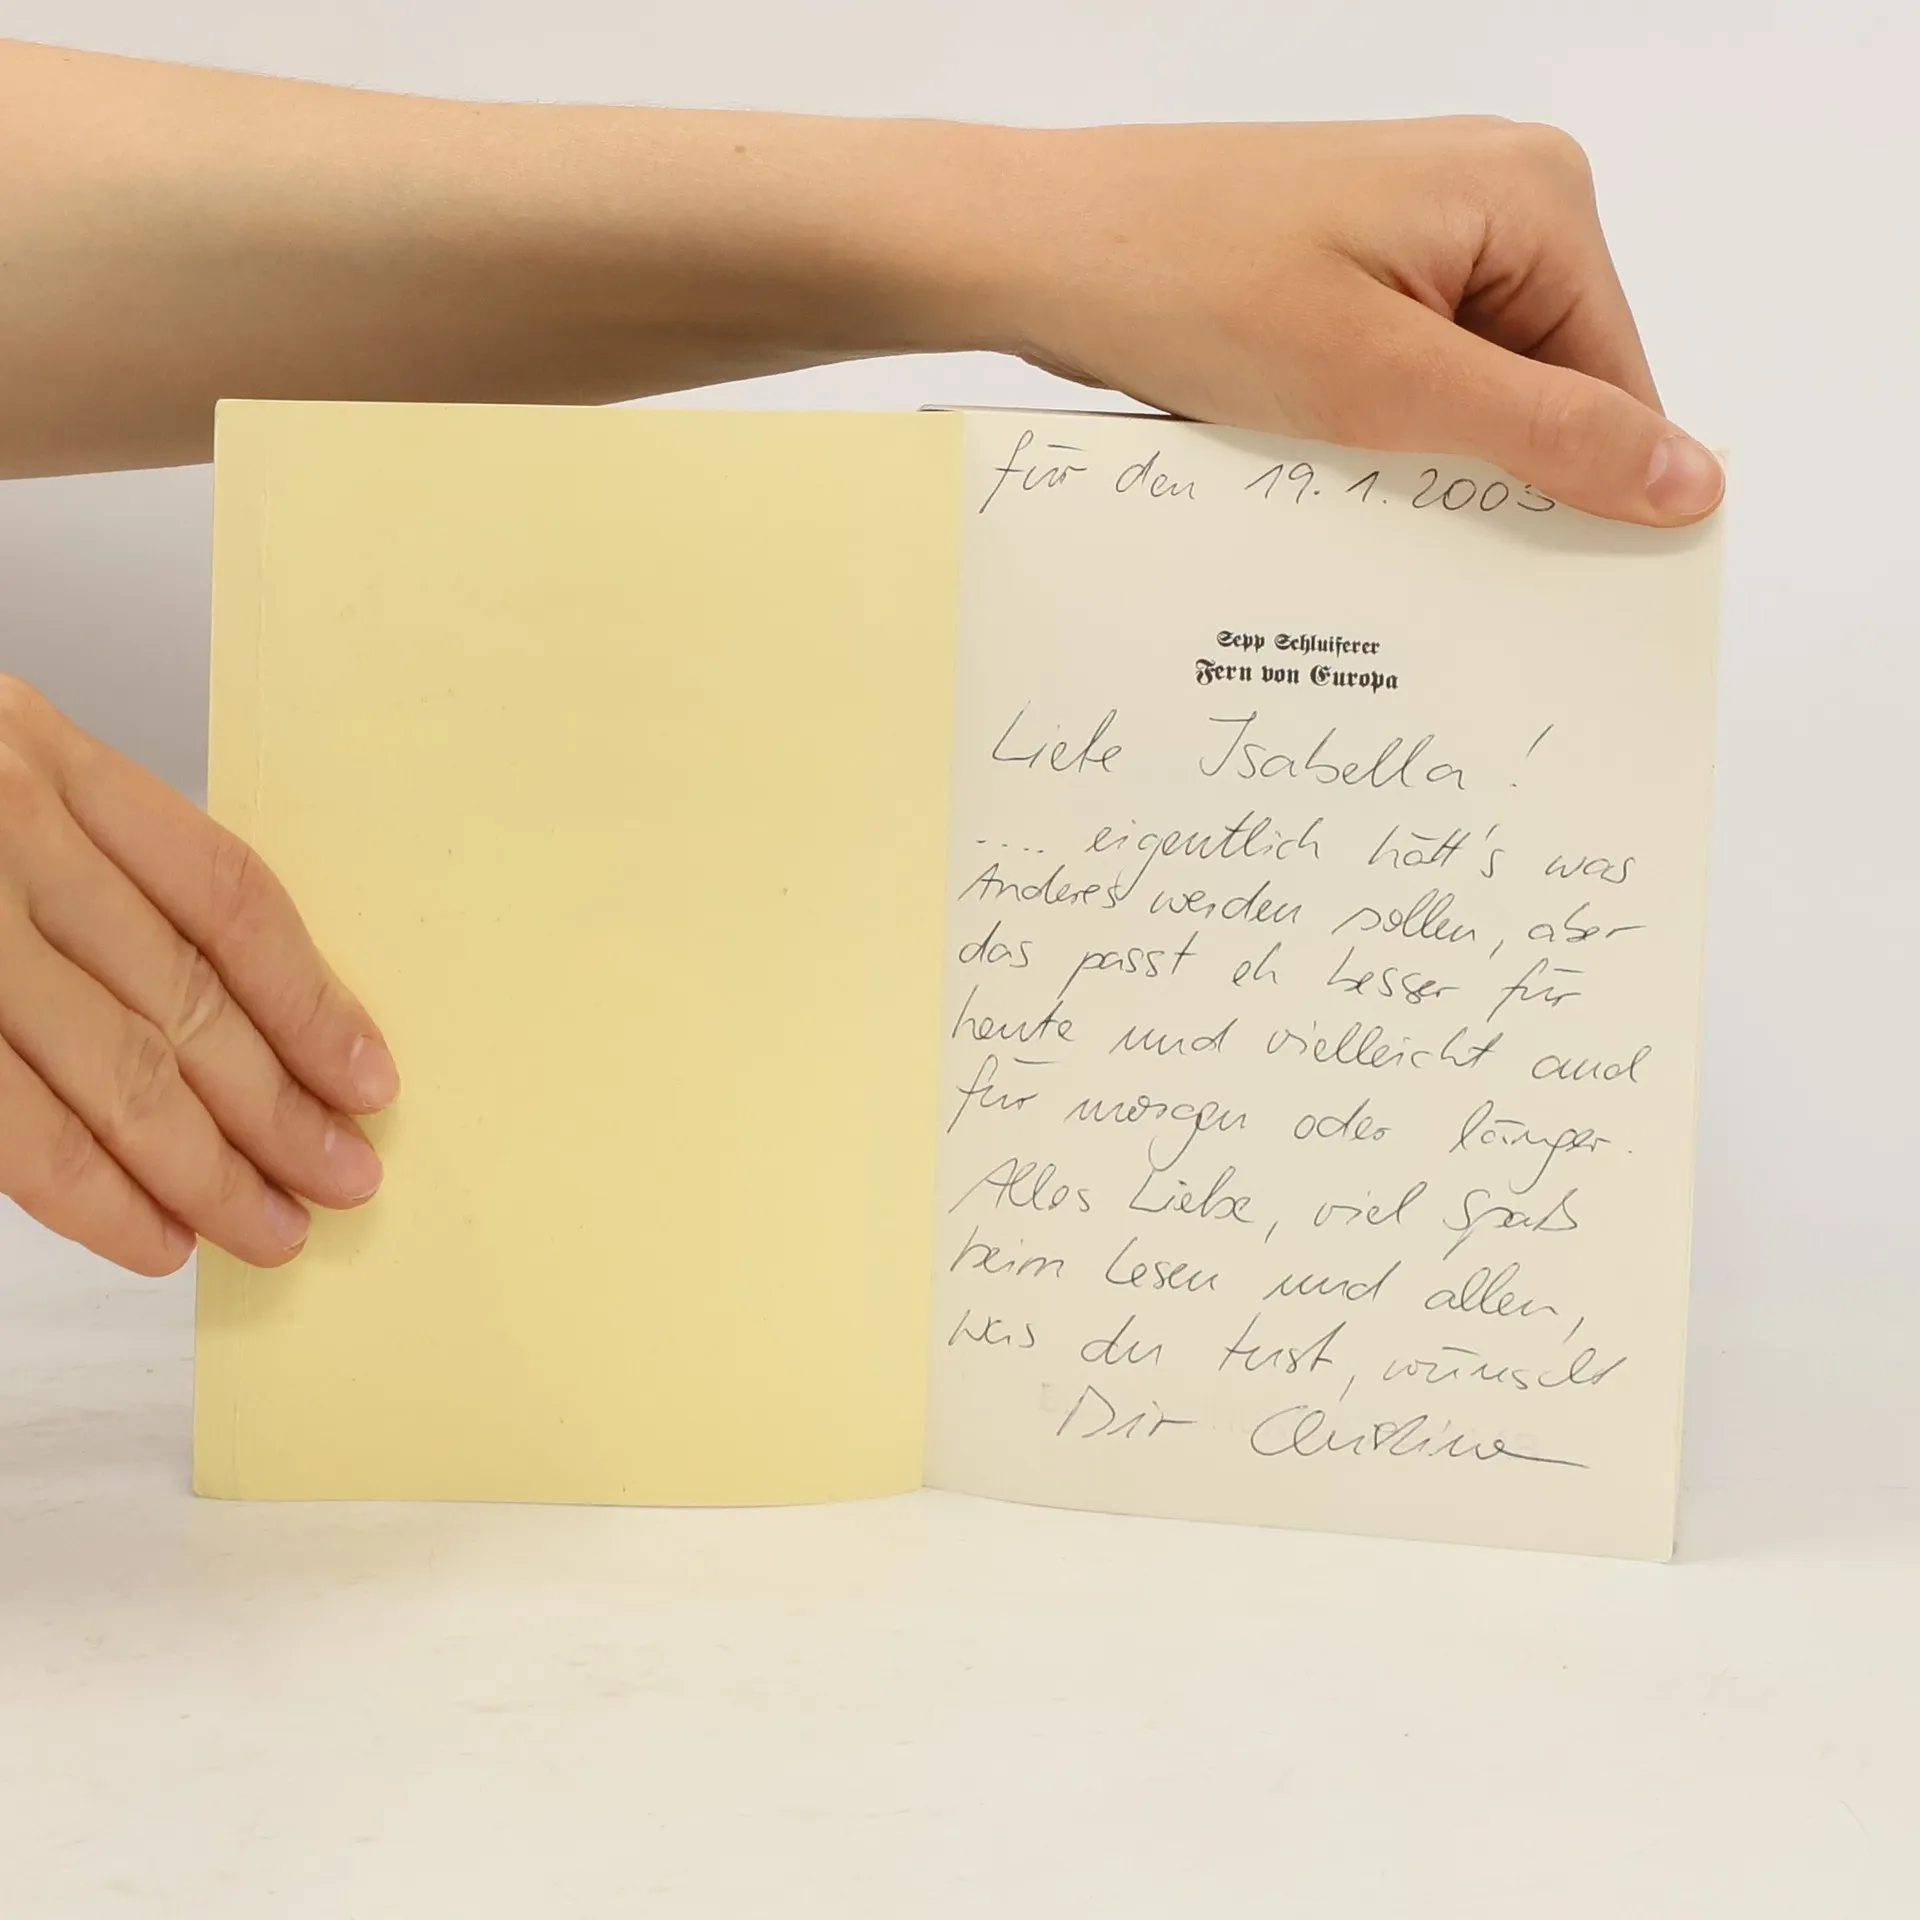 für den 19. 1. 2003
Sepp Schluiferer
Fern von Europa
Liebe Isabella !
.... eigentlich hätt's was
Anderes werden sollen, aber
das passt eh besser für
heute und vielleicht auch
für morgen oder länger.
Alles Liebe, viel Spaß
beim Lesen und allem,
was du tust, wünscht
Dir Christine